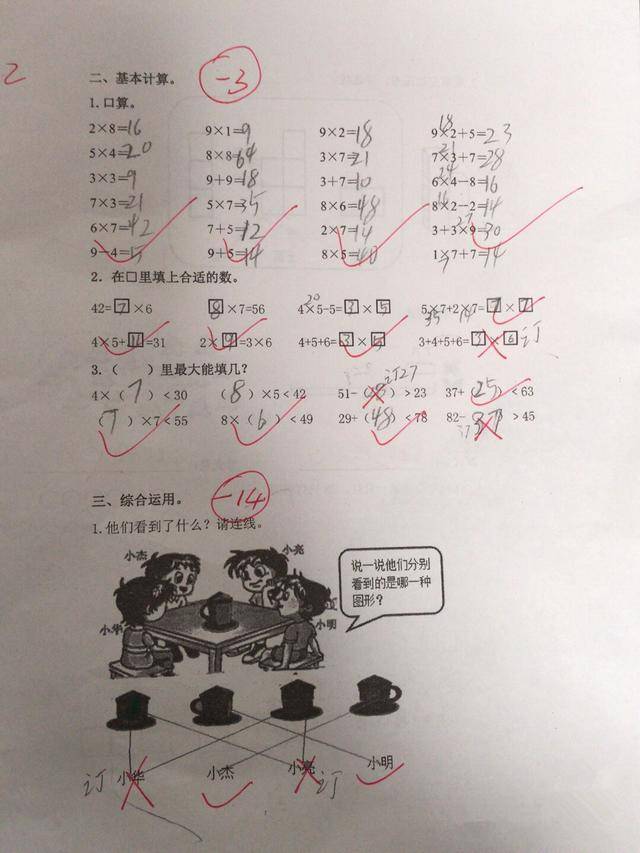 2
二、基本计算。 -3
1.口算。
2×8=16 9×1=9 9×2=18 9×2+5=23
5×4=20 8×8=64 3×7=21 7×3+7=28
3×3=9 9+9=18 3+7=10 6×4-8=16
7×3=21 5×7=35 8×6=48 8×2-2=14
6×7=42 7+5=12 2×7=14 3+3×9=30
9-4=5 9+5=14 8×5=40 1×7+7=14
2.在□里填上合适的数。
42=7×6 8×7=56 4×5-5=3×5 5×7+2×7=7×7
4×5+11=31 2×9=3×6 4+5+6=3×5 3+4+5+6=3×6 订
3.( )里最大能填几?
订27
4×(7)<30 (8)×5<42 51-( )>23 37+(25)<63
(7)×7<55 8×(6)<49 29+(48)<78 82-( )>45
订
三、综合运用。 -14
1.他们看到了什么?请连线。
小杰 小亮
说一说他们分别
看到的是哪一种
图形?
小华 小明
订 小华 小杰 小亮 订 小明